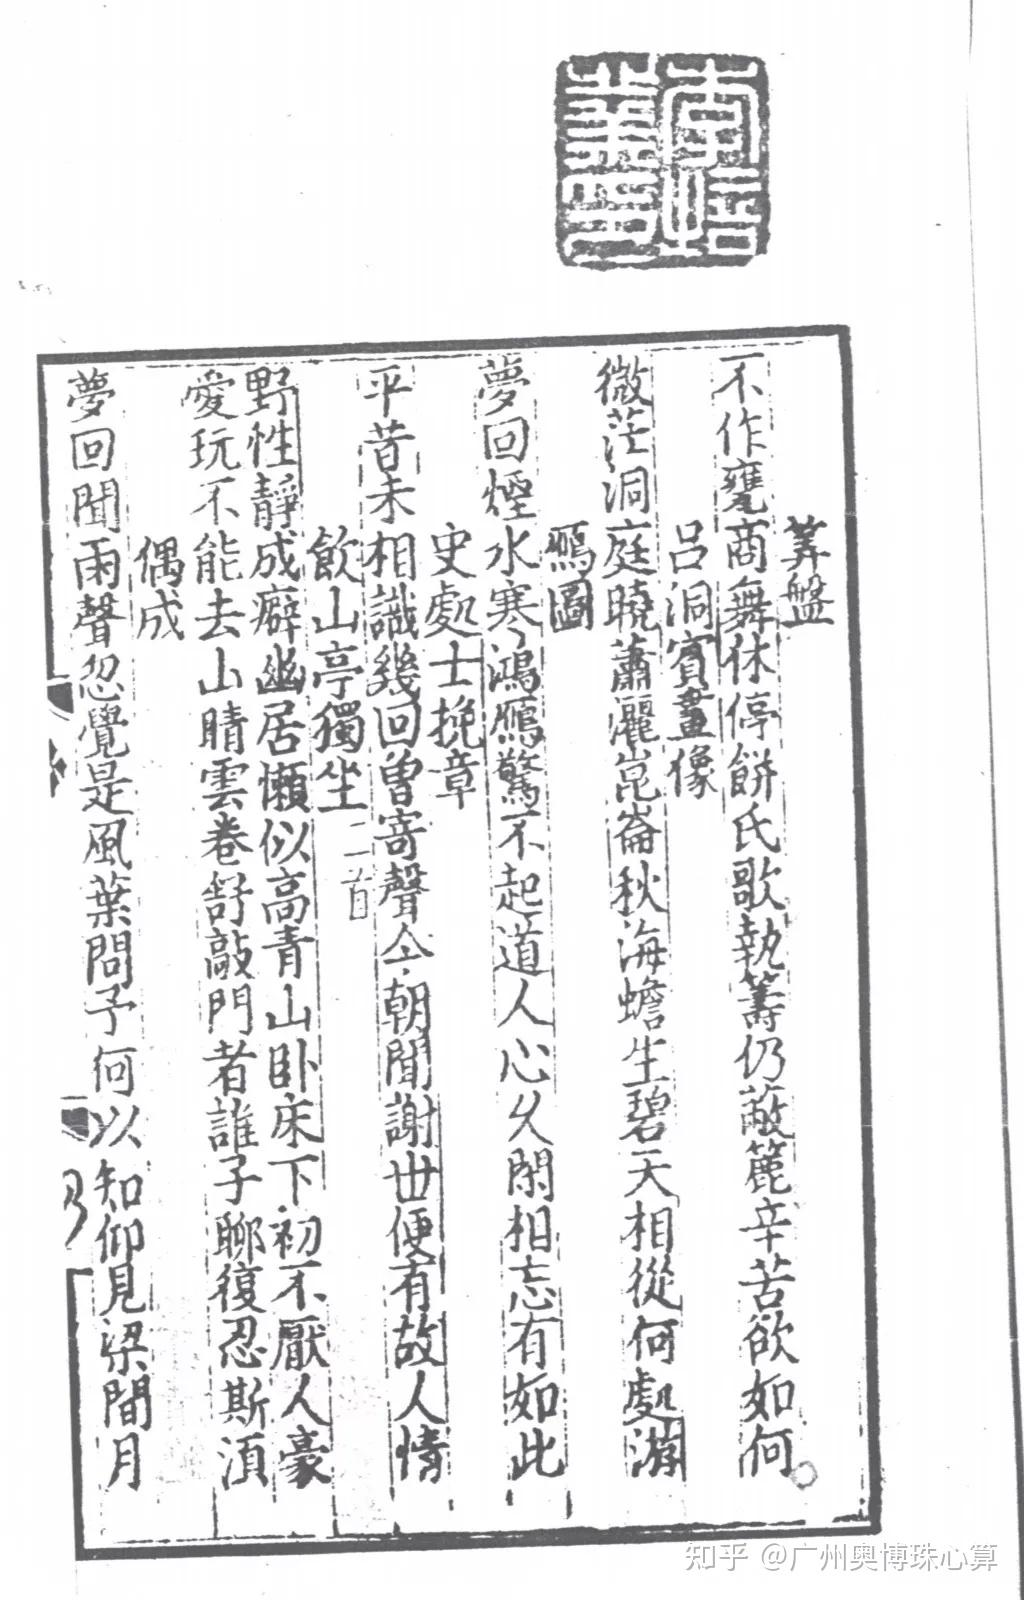 算盤
不作甕商舞休停餅氏歌執籌仍蔽簏辛苦欲如何
呂洞賓畫像
微茫洞庭曉蕭灑崑崙秋海蟾生碧天相從何處游
鴈圖
夢回煙水寒鴻鴈驚不起道人心久閑相忘有如此
史處士挽章
平昔未相識幾回曽寄聲今朝聞謝世便有故人情
飲山亭獨坐二首
野性靜成癖幽居懶似高青山卧床下初不厭人豪
愛玩不能去山晴雲卷舒敲門者誰子聊復忍斯湏
偶成
夢回聞雨聲忽覺是風葉問予何以知仰見梁間月
知乎 @广州奥博珠心算